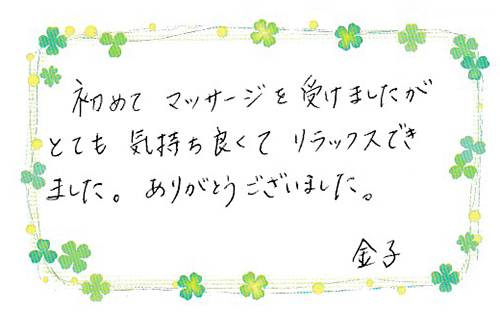 初めて マッサージを 受けましたが
とても 気持ち良くて リラックスでき
ました。ありがとうございました。
金子